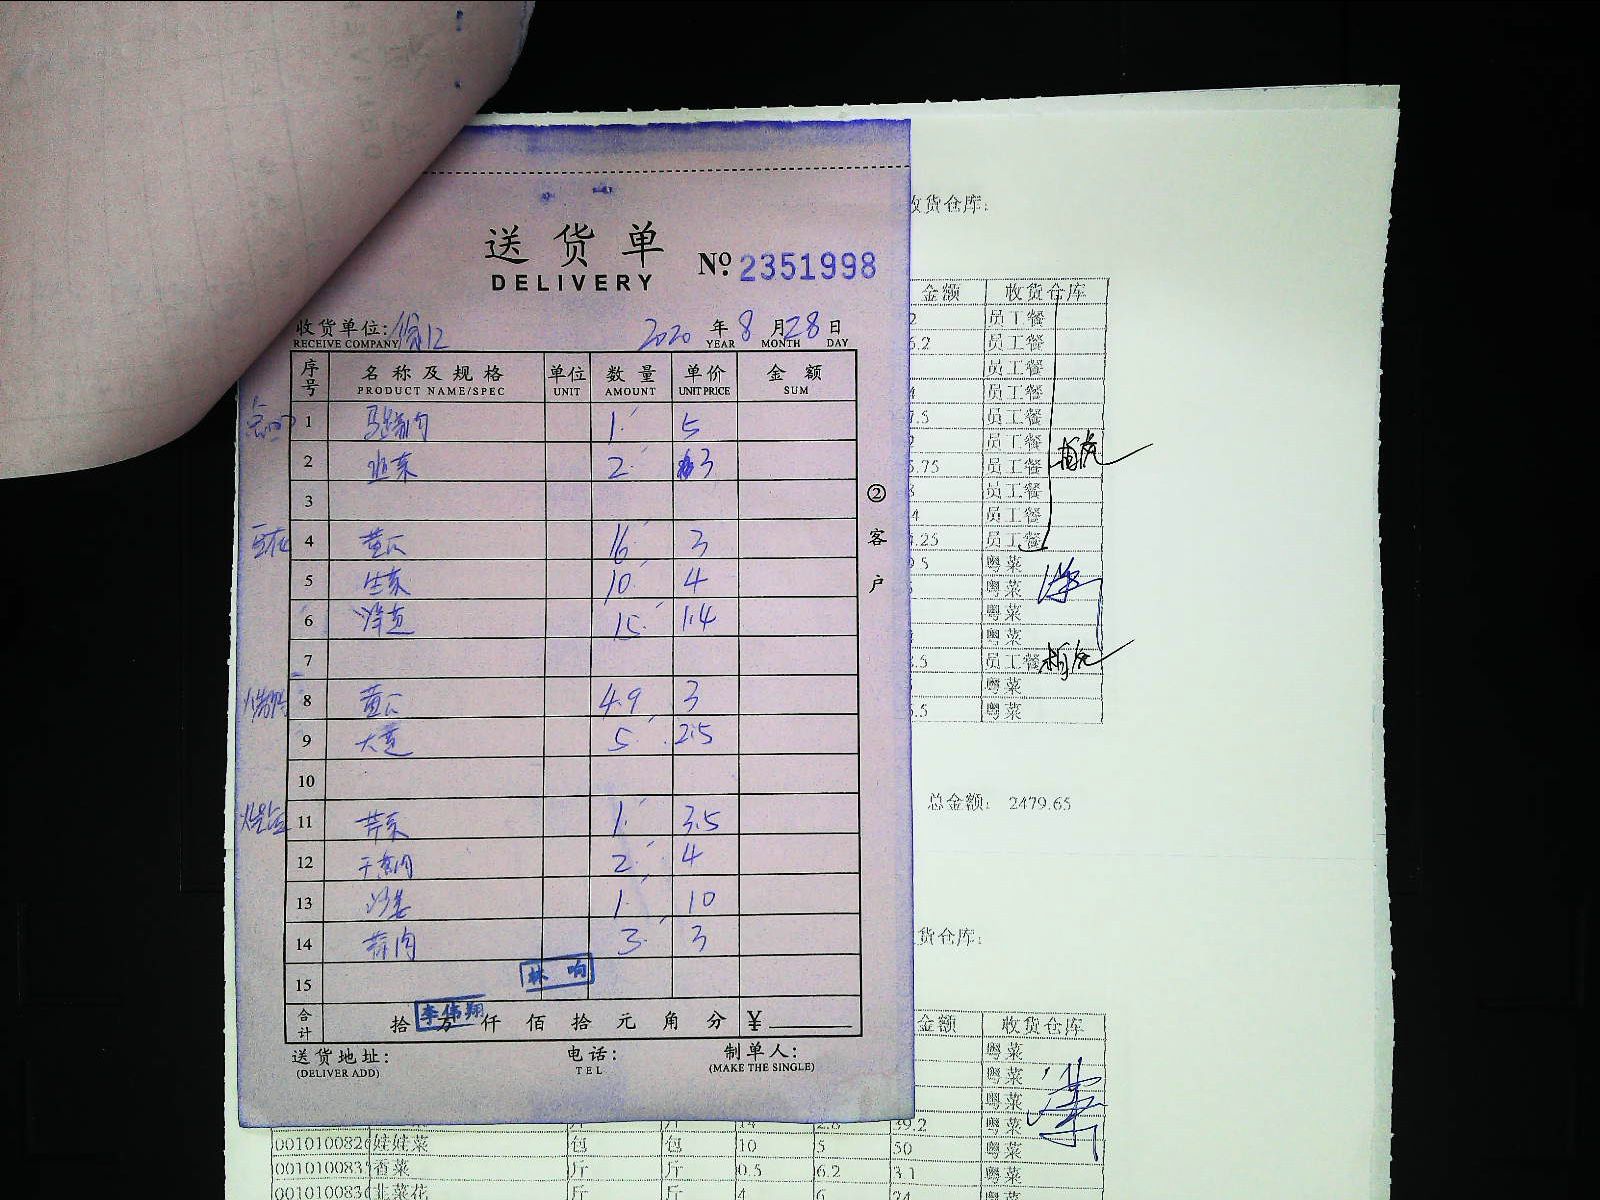 送货单
DELIVERY
№ 2351998
收货单位:
RECEIVE COMPANY
2020 年 8 月 28 日
YEAR MONTH DAY
序号 名称及规格 单位 数量 单价 金额
PRODUCT NAME/SPEC UNIT AMOUNT UNIT PRICE SUM
1 1 5
2 2 3
3
4 黄瓜 16 3
5 生菜 10 4
6 洋葱 15 1.4
7
8 黄瓜 4.9 3
9 大葱 5 2.5
10
11 芹菜 1 3.5
12 干葱肉 2 4
13 沙姜 1 10
14 蒜肉 3 3
15
林响
李伟翔
合计 拾 万 仟 佰 拾 元 角 分 ¥
送货地址:
(DELIVER ADD)
电话:
TEL
制单人:
(MAKE THE SINGLE)
② 客户
收货仓库:
金额 收货仓库
2 员工餐
6.2 员工餐
员工餐
4 员工餐
7.5 员工餐
2 员工餐
5.75 员工餐
8 员工餐
4 员工餐
4.25 员工餐
95 粤菜
粤菜
粤菜
粤菜
8.5 员工餐
粤菜
5.5 粤菜
总金额: 2479.65
货仓库:
金额 收货仓库
粤菜
粤菜
粤菜
斤 斤 14 2.8 39.2 粤菜
娃娃菜 包 包 10 5 50 粤菜
香菜 斤 斤 0.5 6.2 3.1 粤菜
韭菜花 斤 斤 4 6 24 粤菜